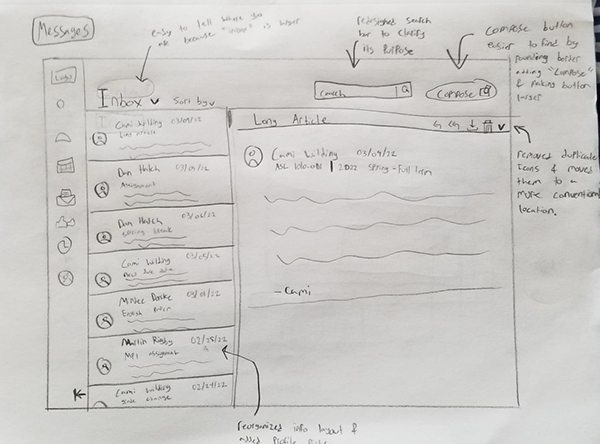 Messages
easy to tell where you
are because "inbox" is larger
redesigned search
bar to clarify
its purpose
Compose button
easier to find by
rounding border
adding "Compose"
& making button
larger
Logo
Inbox
Sort by
Search
Compose
Cami Wilding 03/09/22
Long Article
Dan Hatch 03/09/22
Assignment
Dan Hatch 03/08/22
Spring break
Cami Wilding 03/05/22
New due date
03/01/22
Martin Rigby 02/28/22
MP1 assignment
Cami Wilding 02/27/22
change
Long Article
Cami Wilding 03/09/22
2022 Spring - Full Term
- Cami
removed duplicate
Icons & moved
them to a
more conventional
location.
reorganized info layout &
added Profile